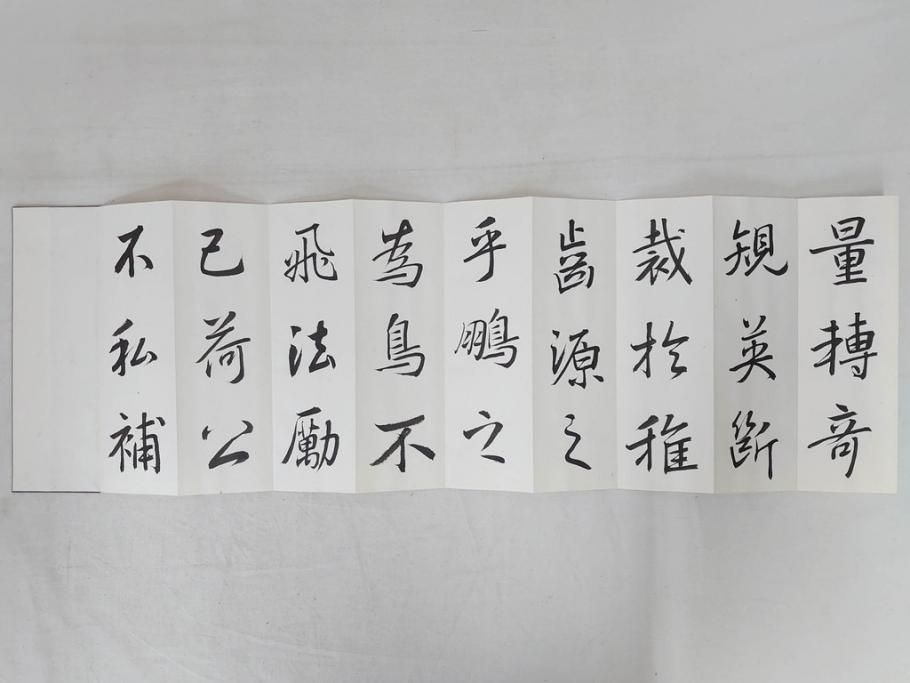 量轉奇
規英斷
裁於稚
齒源之
乎鵬之
為鳥不
飛法勵
己荷公
不私補